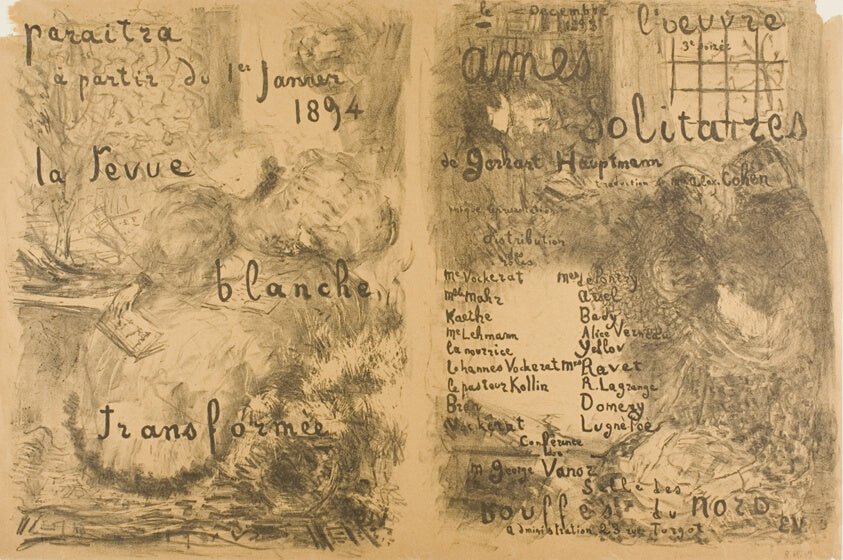 paraîtra
à partir du 1er Janvier
1894
la revue
blanche
transformée
le Decembre
1893
l'oeuvre
3e soirée
ames
Solitaires
de Gerhart Hauptmann
traduction de alex. Cohen
unique représentation
distribution
des
rôles
Me Vockerat Mmes de Pontry
Mlle Mahr
Kaethe Bady
Me Lehmann Alice Verneau
la nourrice Yellov
Iohannes Vockerat Mrs Ravet
le pasteur Kollin R. Lagrange
Bran Domeny
Vockerat Lugné Poe
Conférence
de
M George Vanor
Salle des
bouffes du NORD
administration 23 rue Turgot
EV